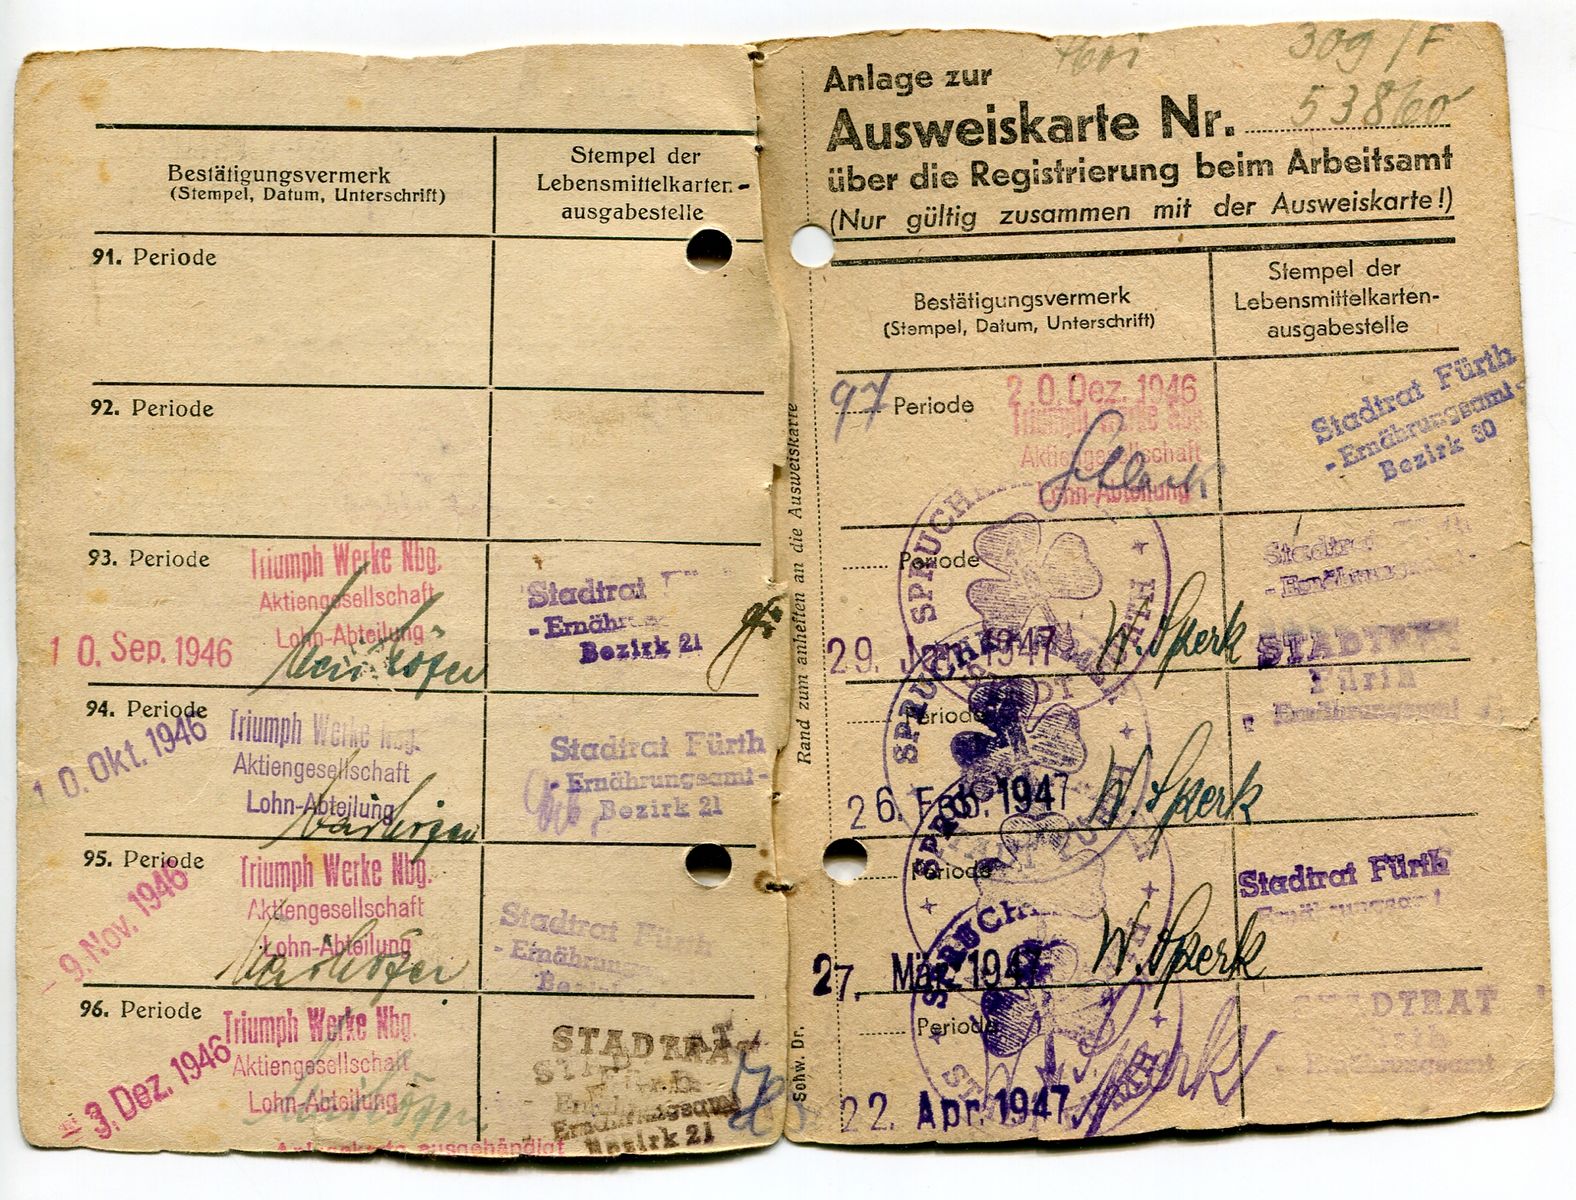 Bestätigungsvermerk
(Stempel, Datum, Unterschrift)
Stempel der
Lebensmittelkarten-
ausgabestelle
91. Periode
92. Periode
93. Periode
Triumph Werke Nbg.
Aktiengesellschaft
Lohn-Abteilung
10. Sep. 1946
Stadtrat
- Ernährungs
Bezirk 21
94. Periode
10. Okt. 1946
Triumph Werke Nbg.
Aktiengesellschaft
Lohn-Abteilung
Stadtrat Fürth
- Ernährungsamt-
Bezirk 21
95. Periode
- 9. Nov. 1946
Triumph Werke Nbg.
Aktiengesellschaft
Lohn-Abteilung
Stadtrat Fürth
- Ernährungs
96. Periode
3. Dez. 1946
Triumph Werke Nbg.
Aktiengesellschaft
Lohn-Abteilung
STADTRAT
Ernährungsamt
Bezirk 21
ausgehändigt
Rand zum anheften an die Ausweiskarte
Schw. Dr.
309/F
Anlage zur
Ausweiskarte Nr. 53860
über die Registrierung beim Arbeitsamt
(Nur gültig zusammen mit der Ausweiskarte!)
Bestätigungsvermerk
(Stempel, Datum, Unterschrift)
Stempel der
Lebensmittelkarten-
ausgabestelle
97 Periode
20. Dez. 1946
Triumph Werke Nbg.
Aktiengesellschaft
Lohn-Abteilung
Stadtrat Fürth
- Ernährungsamt-
Bezirk 30
Periode
29. 1947
W. Sperk
Stadtrat
- Ernährungsamt-
STADTRAT
Fürth
Ernährungsamt
Periode
26. Feb. 1947
W. Sperk
Periode
27. März 1947
W. Sperk
Stadtrat Fürth
Ernährungsamt
Periode
22. Apr. 1947
Sperk
STADTRAT
Ernährungsamt